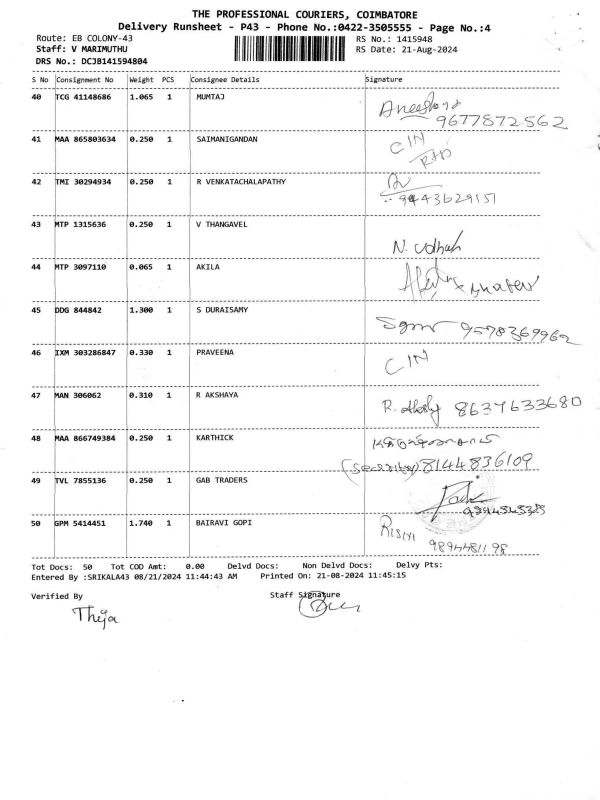 THE PROFESSIONAL COURIERS, COIMBATORE
Delivery Runsheet - P43 - Phone No.:0422-3505555 - Page No.:4
Route: EB COLONY-43 RS No.: 1415948
Staff: V MARIMUTHU RS Date: 21-Aug-2024
DRS No.: DCJB141594804
S No Consignment No Weight PCS Consignee Details Signature
40 TCG 41148686 1.065 1 MUMTAJ
9677872562
41 MAA 865803634 0.250 1 SAIMANIGANDAN CIN
42 TMI 30294934 0.250 1 R VENKATACHALAPATHY
9443629151
43 MTP 1315636 0.250 1 V THANGAVEL
44 MTP 3097110 0.065 1 AKILA
45 DDG 844842 1.300 1 S DURAISAMY
9578369962
46 IXM 303286847 0.330 1 PRAVEENA CIN
47 MAN 306062 0.310 1 R AKSHAYA
8637633680
48 MAA 866749384 0.250 1 KARTHICK
(Security) 8144836109
49 TVL 7855136 0.250 1 GAB TRADERS
50 GPM 5414451 1.740 1 BAIRAVI GOPI
9894481198
Tot Docs: 50 Tot COD Amt: 0.00 Delvd Docs: Non Delvd Docs: Delvy Pts:
Entered By :SRIKALA43 08/21/2024 11:44:43 AM Printed On: 21-08-2024 11:45:15
Verified By Staff Signature
Theja